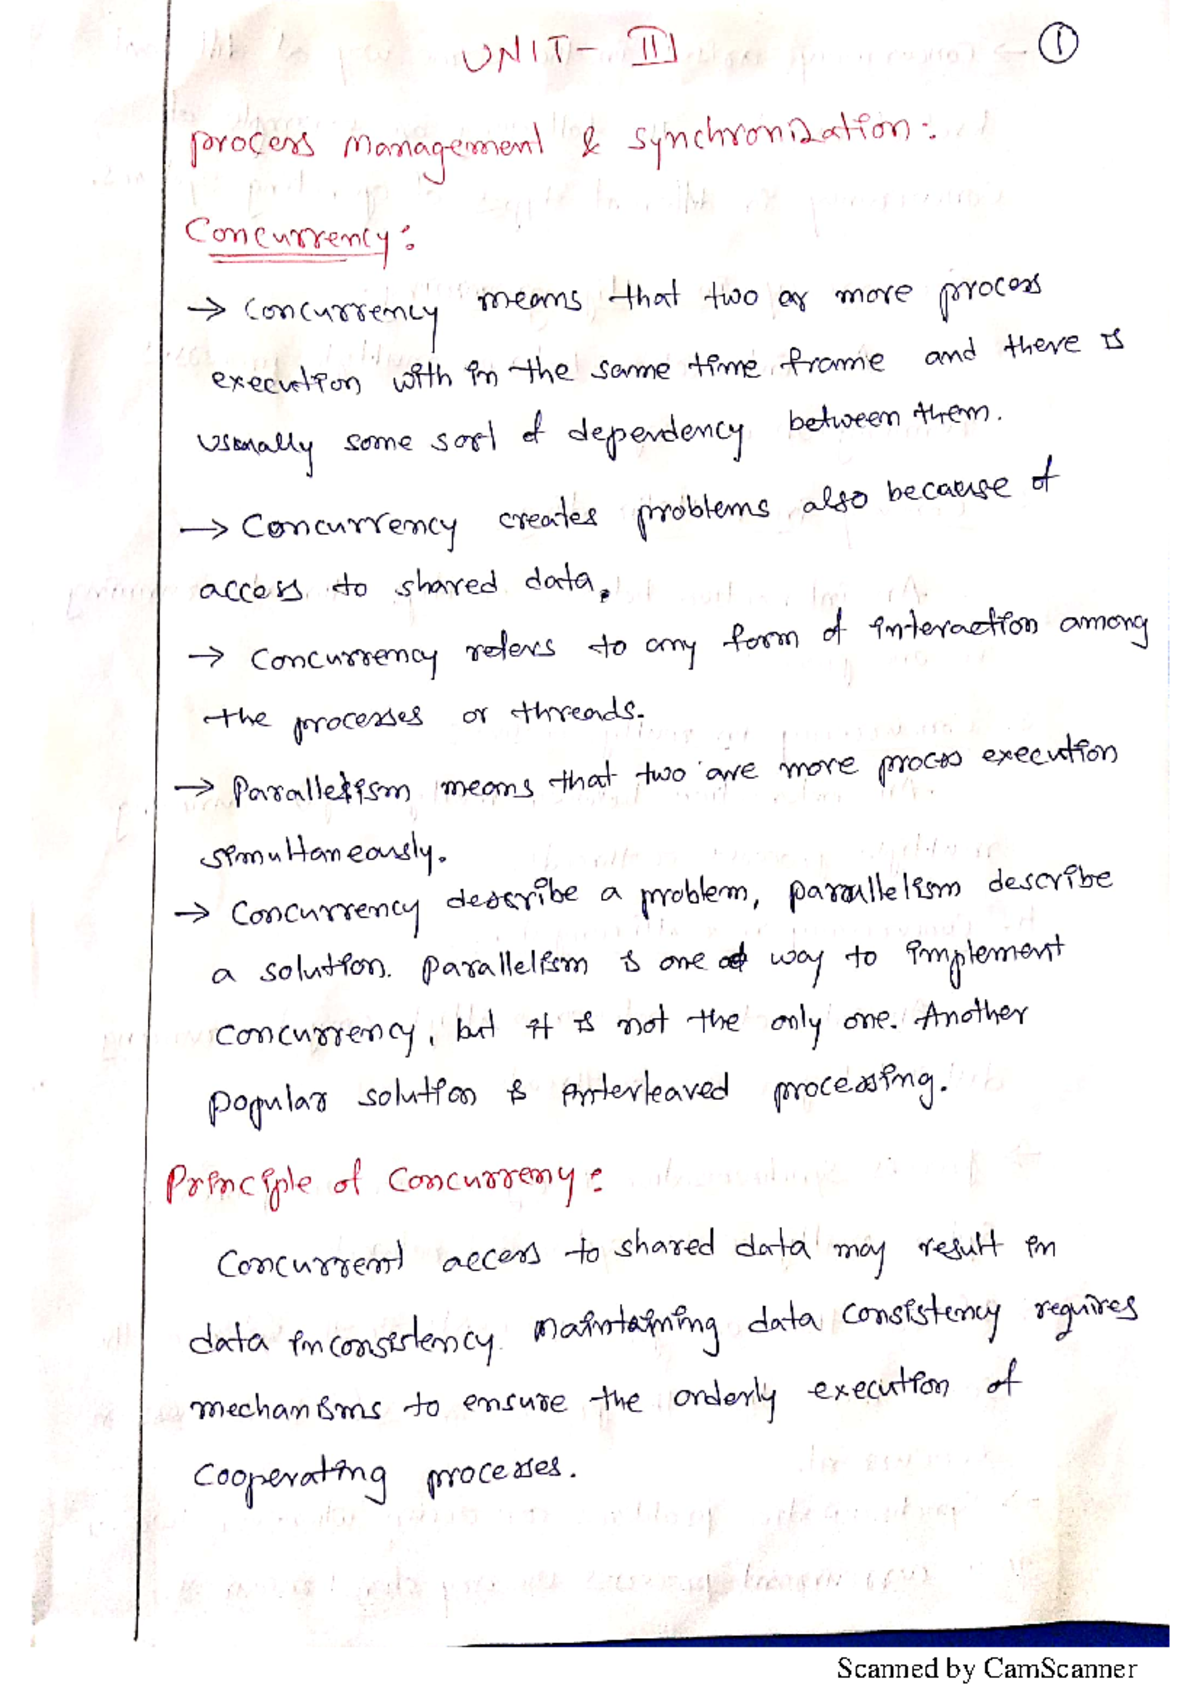 UNIT- III
1
process management & synchronization:
Concurrency:
→ Concurrency means that two or more process
execution with in the same time frame and there is
usually some sort of dependency between them.
→ Concurrency creates problems also because of
access to shared data.
→ Concurrency refers to any form of interaction among
the processes or threads.
→ Parallelism means that two are more process execution
simultaneously.
→ Concurrency describe a problem, parallelism describe
a solution. parallelism is one way to implement
concurrency, but it is not the only one. Another
popular solution is interleaved processing.
Principle of Concurreny:
Concurrent access to shared data may result in
data inconsistency. maintaining data consistency requires
mechanisms to ensure the orderly execution of
cooperating processes.
Scanned by CamScanner